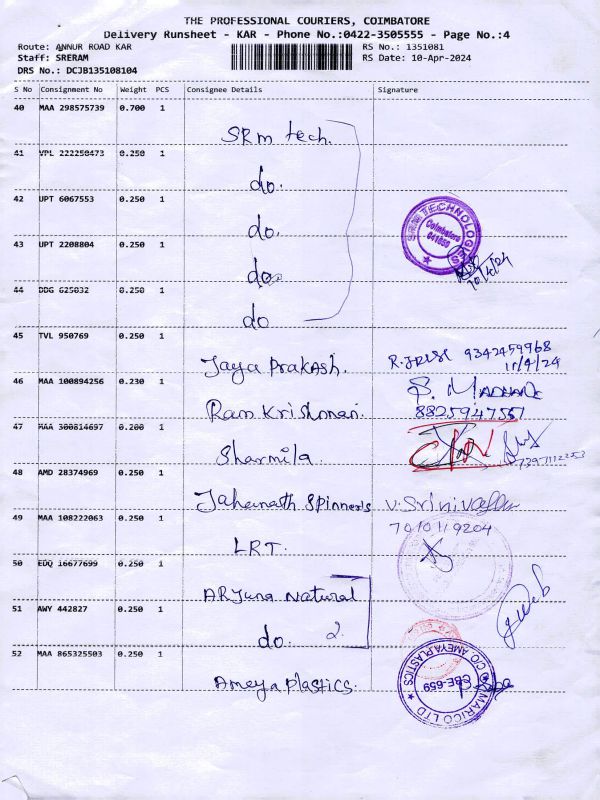 THE PROFESSIONAL COURIERS, COIMBATORE
Delivery Runsheet - KAR - Phone No.:0422-3505555 - Page No.:4
Route: ANNUR ROAD KAR RS No.: 1351081
Staff: SRERAM RS Date: 10-Apr-2024
DRS No.: DCJB135108104
S No Consignment No Weight PCS Consignee Details Signature
40 MAA 298575739 0.700 1
SRM tech.
41 VPL 222250473 0.250 1
do.
42 UPT 6067553 0.250 1
do.
SRM TECHNOLOGIES
Coimbatore
641659
43 UPT 2208804 0.250 1
do.
10/4/24
44 DDG 625032 0.250 1
do
45 TVL 950769 0.250 1
Jaya Prakash. 9342459968
11/4/24
46 MAA 100894256 0.230 1
Ram Krishnan.
8825947551
47 MAA 300814697 0.200 1
Sharmila.
48 AMD 28374969 0.250 1
Spinners V. Srinivasan
7010119204
49 MAA 108222063 0.250 1
LRT.
50 EDQ 16677699 0.250 1
ARJuna Natural
51 AWY 442827 0.250 1
do. 2
52 MAA 865325503 0.250 1
Ameya Plastics.
C/O. AMEYA PLASTICS
CBE-659
MARICO LTD